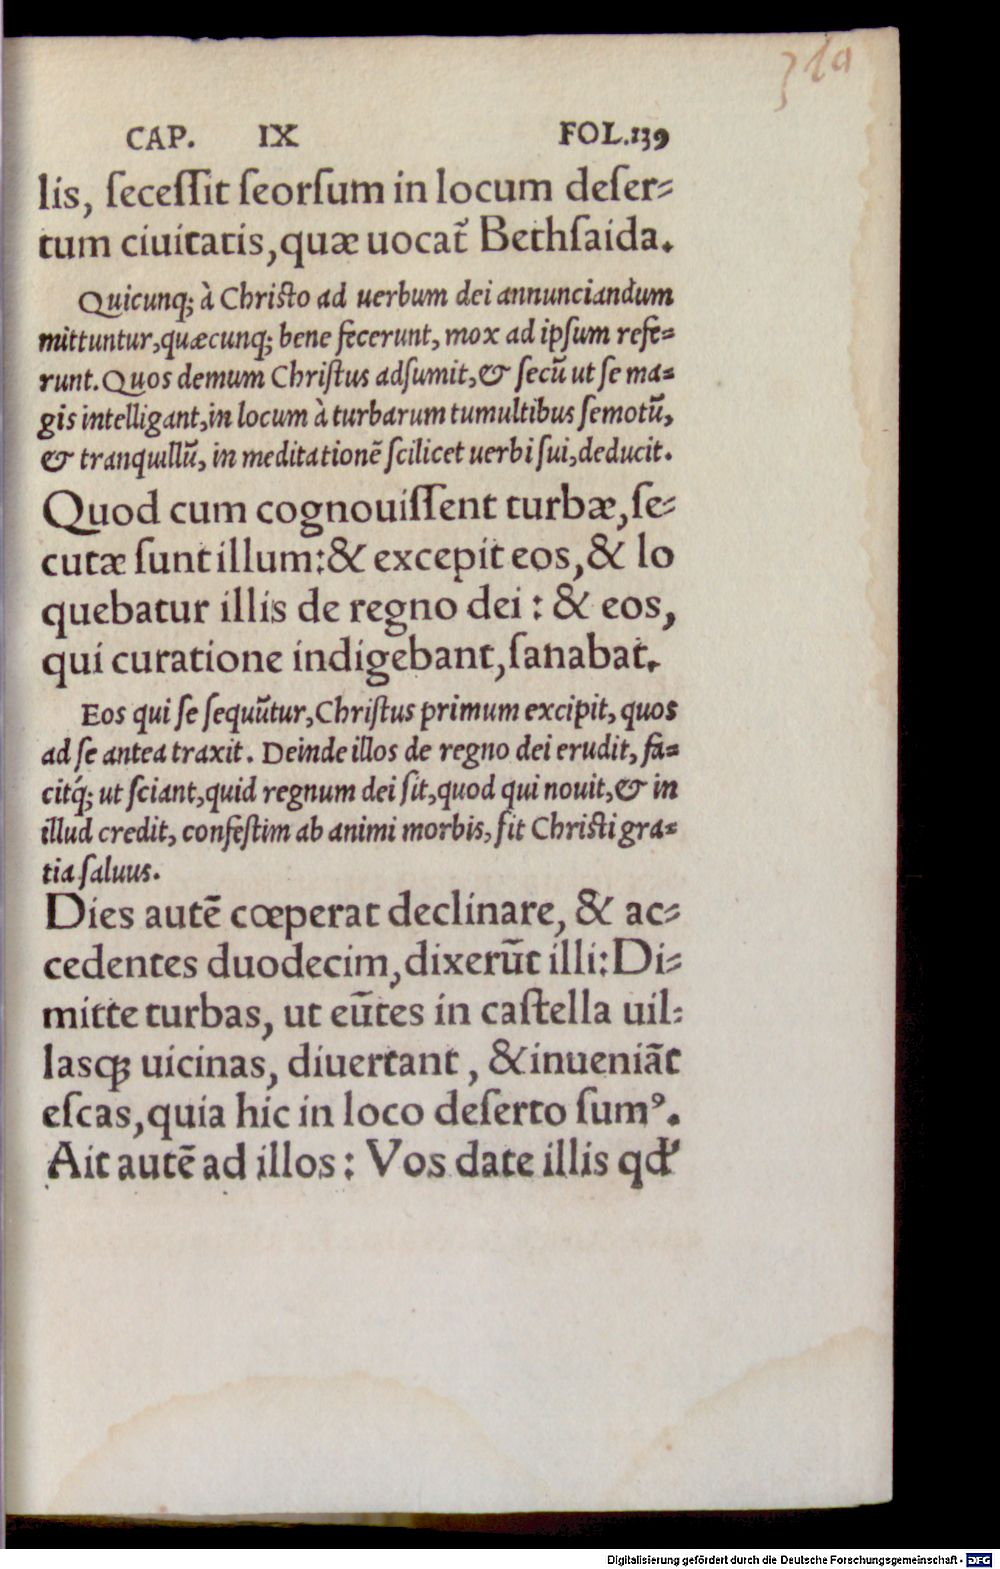 CAP. IX FOL.139
lis, ſeceſſit ſeorſum in locum deſer-
tum ciuitatis, quæ uocat᷑ Bethſaida.
Quicunq; à Chriſto ad uerbum dei annunciandum
mittuntur, quæcunq; bene fecerunt, mox ad ipſum refe-
runt. Quos demum Chriſtus adſumit, & ſecũ ut ſe ma-
gis intelligant, in locum à turbarum tumultibus ſemotũ,
& tranquillũ, in meditationẽ ſcilicet uerbi ſui, deducit.
Quod cum cognouiſſent turbæ, ſe-
cutæ ſunt illum: & excepit eos, & lo
quebatur illis de regno dei : & eos,
qui curatione indigebant, ſanabat.
Eos qui ſe ſequũtur, Chriſtus primum excipit, quos
ad ſe antea traxit. Deinde illos de regno dei erudit, fa-
citq́; ut ſciant, quid regnum dei ſit, quod qui nouit, & in
illud credit, confeſtim ab animi morbis, fit Chriſti gra-
tia ſaluus.
Dies autẽ cœperat declinare, & ac-
cedentes duodecim, dixerũt illi: Di-
mitte turbas, ut eũtes in caſtella uil-
lasq; uicinas, diuertant, & inueniãt
eſcas, quia hic in loco deſerto ſumꝰ.
Ait autẽ ad illos: Vos date illis qd'
Digitalisierung gefördert durch die Deutsche Forschungsgemeinschaft - DFG